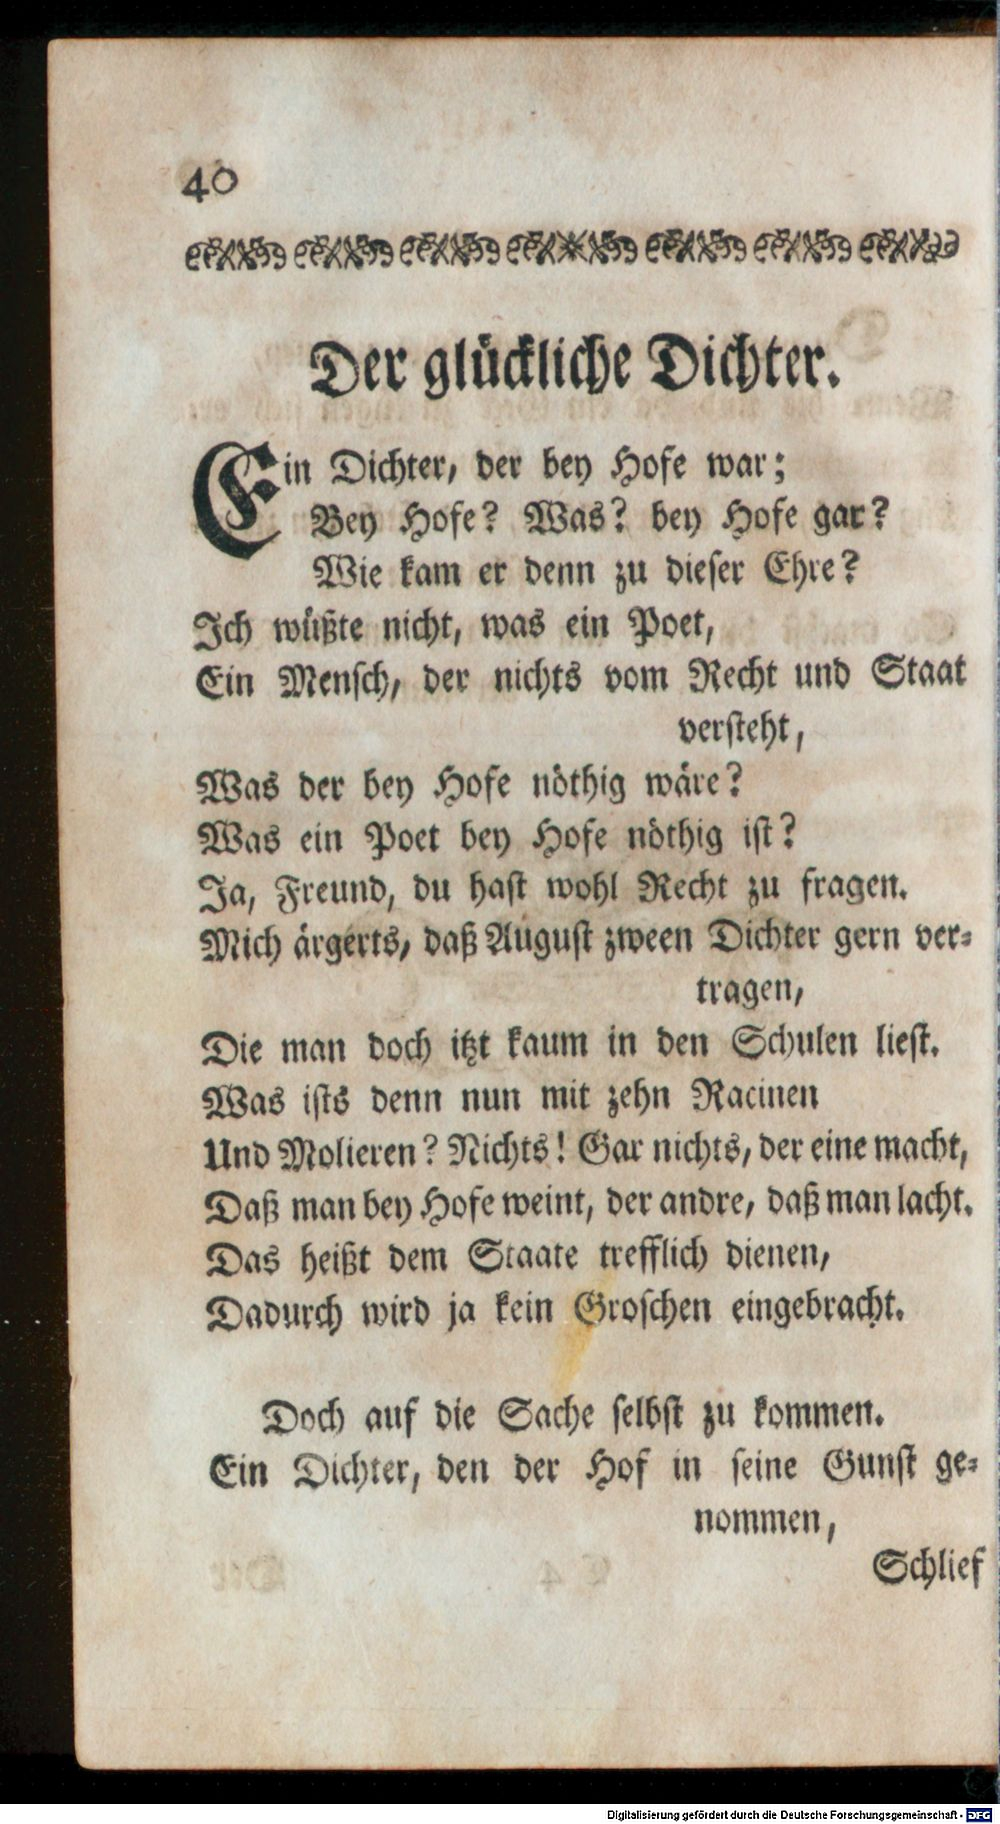 40
Der glückliche Dichter.
Ein Dichter, der bey Hofe war;
Bey Hofe? Was? bey Hofe gar?
Wie kam er denn zu dieser Ehre?
Ich wüßte nicht, was ein Poet,
Ein Mensch, der nichts vom Recht und Staat
versteht,
Was der bey Hofe nöthig wäre?
Was ein Poet bey Hofe nöthig ist?
Ja, Freund, du hast wohl Recht zu fragen.
Mich ärgerts, daß August zween Dichter gern ver-
tragen,
Die man doch itzt kaum in den Schulen liest.
Was ists denn nun mit zehn Racinen
Und Molieren? Nichts! Gar nichts, der eine macht,
Daß man bey Hofe weint, der andre, daß man lacht.
Das heißt dem Staate trefflich dienen,
Dadurch wird ja kein Groschen eingebracht.
Doch auf die Sache selbst zu kommen.
Ein Dichter, den der Hof in seine Gunst ge-
nommen,
Schlief
Digitalisierung gefördert durch die Deutsche Forschungsgemeinschaft - DFG